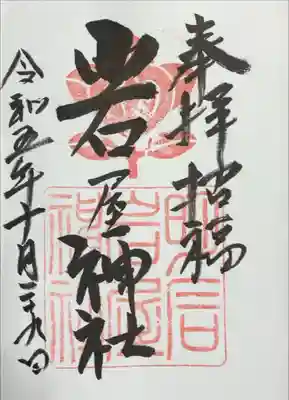 奉拝 招福
岩屋神社
令和五年十月二十九日
明石
岩屋
神社